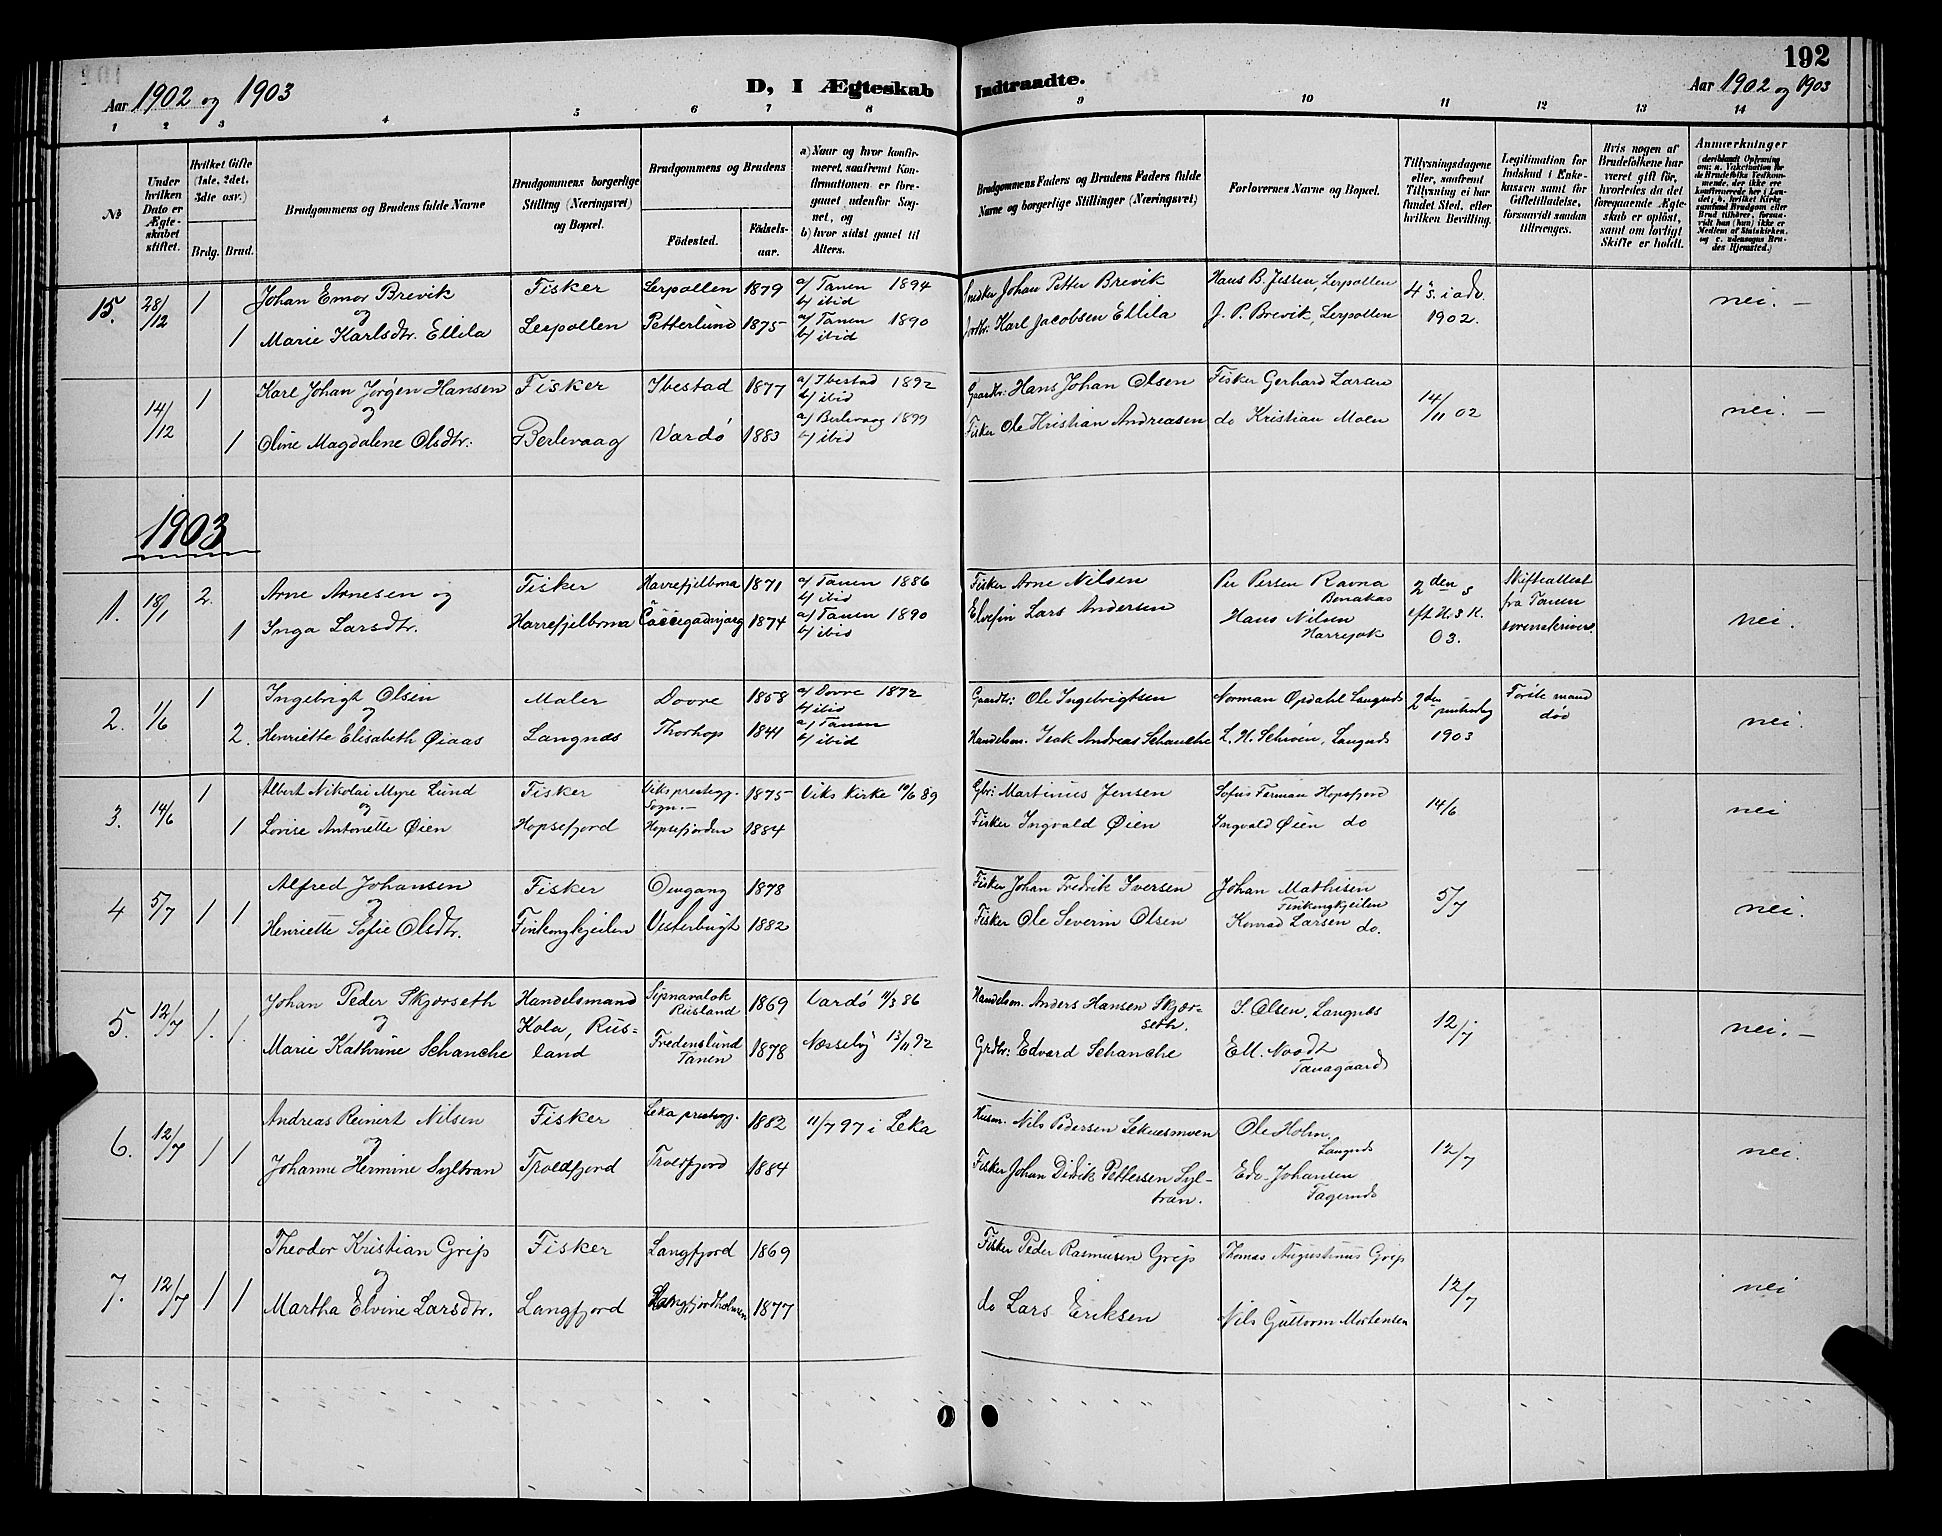 192
Aar 1902 og 1903
D, I Ægteskab Indtraadte.
Aar 1902 og 1903
1 2 3 4 5 6 7 8 9 10 11 12 13 14
№
Under hvilken Dato er Ægteskabet stiftet.
Hvilket Gifte (1ste, 2det, 3die osv.)
Brdg. Brud.
Brudgommens og Brudens fulde Navne
Brudgommens borgerlige Stilling (Næringsvei) og Bopæl.
Brudgommens og Brudens
Födested. Födselsaar.
a) Naar og hvor konfirmeret, saafremt Konfirmationen er foregaaet udenfor Sognet, og
b) hvor sidst gaaet til Alters.
Brudgommens Faders og Brudens Faders fulde Navne og borgerlige Stillinger (Næringsvei)
Forlovernes Navne og Bopæl.
Tillysningsdagene eller, saafremt Tillysning ei har fundet Sted, efter hvilken Bevilling.
Legitimation for Indskud i Enkekassen samt for Giftetilladelse, forsaavidt saadan tiltrænges.
Hvis nogen af Brudefolkene har været gift før, hvorledes da det foregaaende Ægteskab er opløst, samt om lovligt Skifte er holdt.
Anmærkninger
15. 28/12 1 Johan Emor Brevik Fisker Lerpollen 1879 a/ Tanen 1894 b/ ibid Snedker Johan Petter Brevik Hans B. Jessen, Lerpollen 4 s. i adv. nei. –
og
1 Marie Karlsdtr. Ellila Lerpollen Petterlund 1875 a/ Tanen 1890 b/ ibid Karl Jacobsen Ellila J. P. Brevik, Lerpollen 1902.
14/12 1 Karl Johan Jørgen Hansen Fisker Ibestad 1877 a/ Ibestad 1892 b/ ibid Gaardbr: Hans Johan Olsen Fisker Gerhard Larsen 14/11 02 nei. –
og
1 Oline Magdalene Olsdtr: Berlevaag Vardö 1883 a/ Berlevaag 1899 b/ ibid Fisker Ole Kristian Andreasen do Kristian Moen
1903
1. 18/1 2. Arne Arnesen og Fisker Harrefjelbma 1871 a/ Tanen 1886 b/ ibid Fisker Arne Nilsen Per Persen Ravna Bonakas 2den s Skifteattest
1 Inga Larsdtr. Harrefjelbma 1874 a/ Tanen 1890 b/ ibid Lars Andersen Hans Nilsen Harrejok eft H. 3 K. 03. fra Tanen sorenskriver. nei.
2. 1/6 1 Ingebrigt Olsen Maler Dovre 1858 a/ Dovre 1872 b/ ibid Gaardbr: Ole Ingebrigtsen Norman Opdahl Langnæs 2den pintsedag Første mand död nei.
og
2. Henriette Elisabeth Øiaas Langnæs Thorhop 1841 a/ Tanen b/ ibid Handelsm. Isak Andreas Schanche L. H. Schøen, Langnæs 1903
3. 14/6 1 Albert Nikolai Myre Lund Fisker Viks prestegj. Sogn. – 1875 Viks Kirke 10/6 89 Gbr: Martinus Jensen Sofus Hopsfjord 14/6 nei
og
1 Lovise Antonette Øien Hopsefjord Hopsefjorden 1884 Fisker Ingvald Øien Ingvald Øien do
4 5/7 1 Alfred Johansen Fisker Omgang 1878 Fisker Johan Fredrik Iversen Johan Mathisen Finkongkjeilen 5/7 nei.
og
1 Henriette Sofie Olsdtr. Finkongkjeilen Vesterbugt 1882 Fisker Ole Severin Olsen Konrad Larsen do.
5. 12/7 1. Johan Peder Skjørseth Handelsmand Sipnavalok Rusland 1869 Vardö 11/3 86 Handelsm. Anders Hansen Skjørseth. S. Olsen, Langnæs 12/7 nei. –
og
1. Marie Kathrine Schanche Kola, Rusland Fredenslund Tanen 1878 Nesseby 13/11 92 Grdbr: Edvard Schanche Ell. Noodt Tanagaard
6. 12/7 1 Andreas Reinert Nilsen Fisker Leka prestegj. 1882 11/7 97 i Leka Husm. Nils Pedersen Ole Holm, Langnæs 12/7 nei.
og
1 Johanne Hermine Syltran Troldfjord Troldfjord 1884 Fisker Johan Didrik Pettersen Syltran. Edv. Johansen Fagernæs
7. 12/7 1 Theodor Kristian Grip Fisker Langfjord 1869 Fisker Peder Rasmusen Grip Thomas Augustinus Grip 12/7 nei
og
1 Martha Elvine Larsdtr. Langfjord Langfjordholmen 1877 do Lars Eriksen Nils Guttorm Mortensen